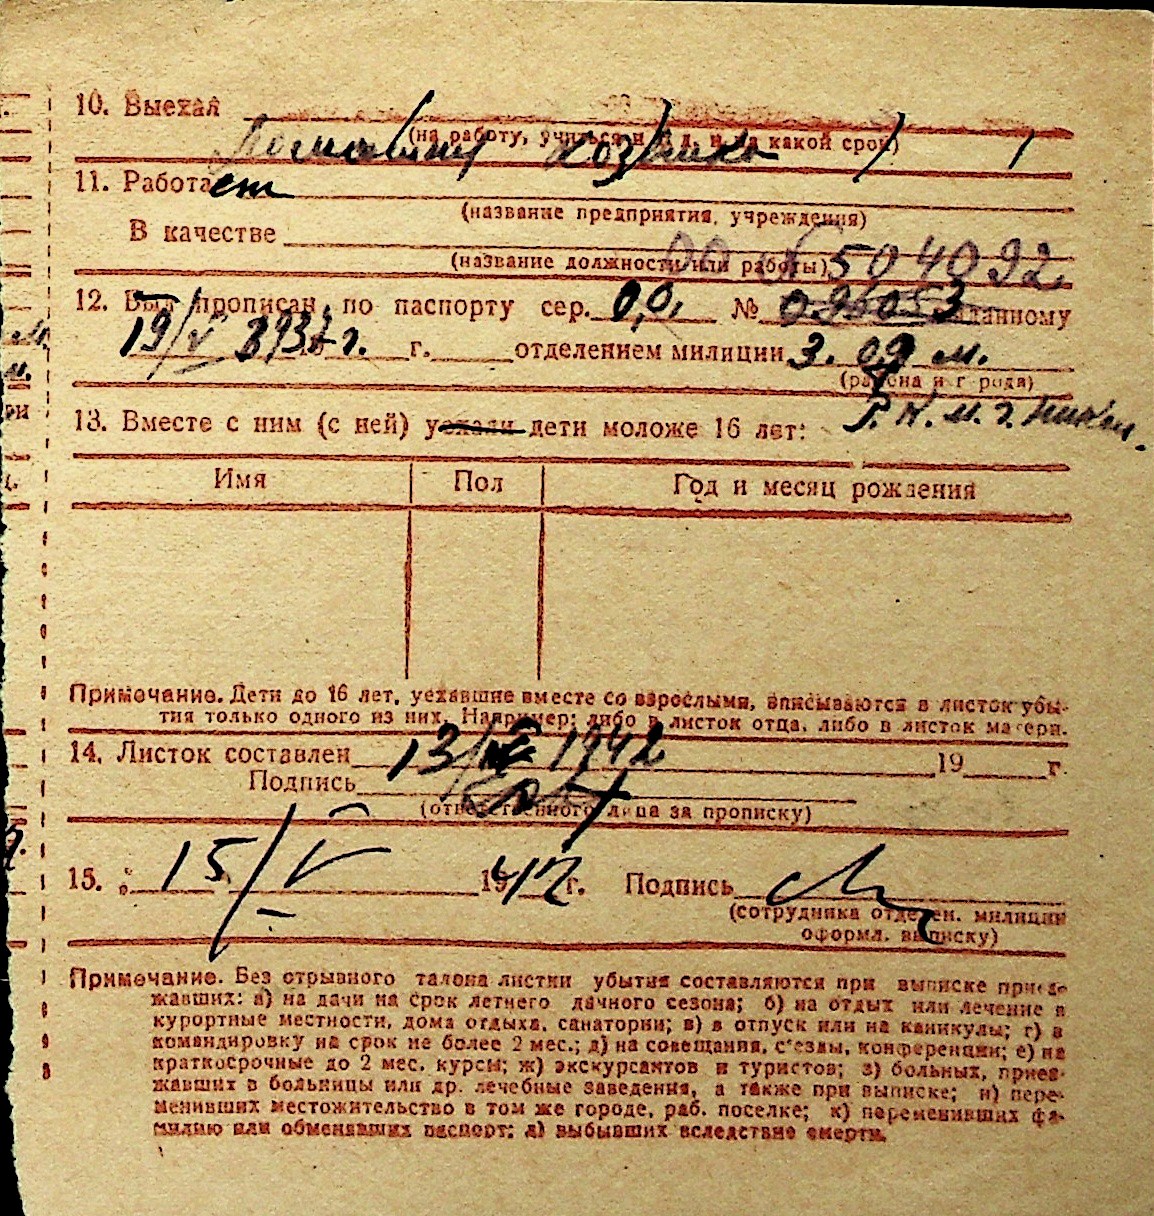 10. Выехал
(на работу, учиться и т. д. и на какой срок)
Домашняя хозяйка
11. Работает
(название предприятия, учреждения)
В качестве
(название должности или работы) 504092
12. Был прописан по паспорту сер. 00 № выданному
19/V г. г. отделением милиции 3. 09 м.
(района и города)
Р. К. М. г.
13. Вместе с ним (с ней) уехали дети моложе 16 лет:
Имя Пол Год и месяц рождения
Примечание. Дети до 16 лет, уехавшие вместе со взрослыми, вписываются в листок убы-
тия только одного из них. Например: либо в листок отца, либо в листок матери.
14. Листок составлен 13/ 1942 19 г.
Подпись
(ответственного лица за прописку)
15. 15/V 1942 г. Подпись
(сотрудника отделен. милиции
оформл. выписку)
Примечание. Без отрывного талона листки убытия составляются при выписке приез-
жавших: а) на дачи на срок летнего дачного сезона; б) на отдых или лечение в
курортные местности, дома отдыха, санатории; в) в отпуск или на каникулы; г) в
командировку на срок не более 2 мес.; д) на совещания, с'езды, конференции; е) на
краткосрочные до 2 мес. курсы; ж) экскурсантов и туристов; з) больных, приез-
жавших в больницы или др. лечебные заведения, а также при выписке; и) пере-
менивших местожительство в том же городе, раб. поселке; к) переменивших фа-
милию или обменявших паспорт; л) выбывших вследствие смерти.